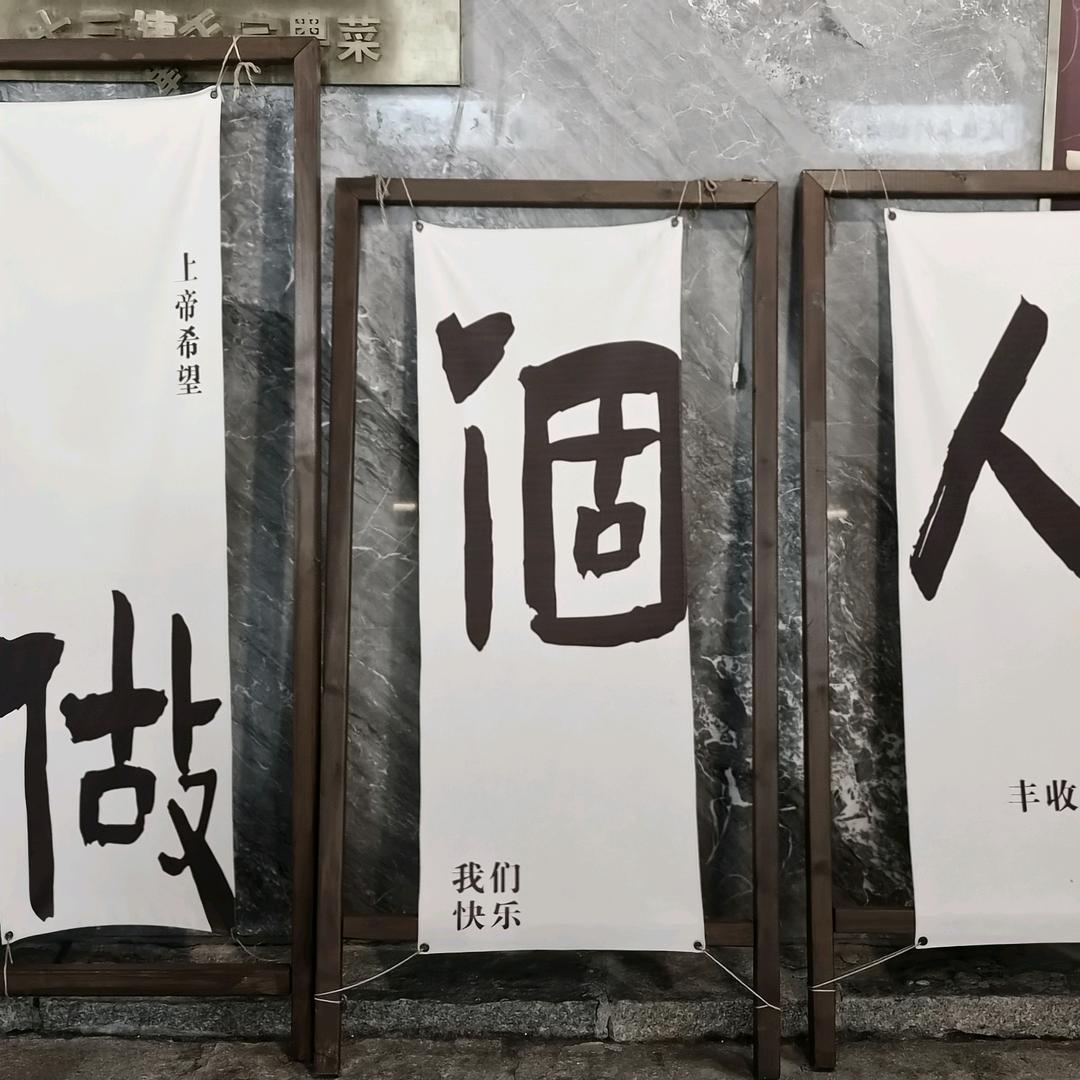 菜
上帝希望
做
個
我们
快乐
人
丰收